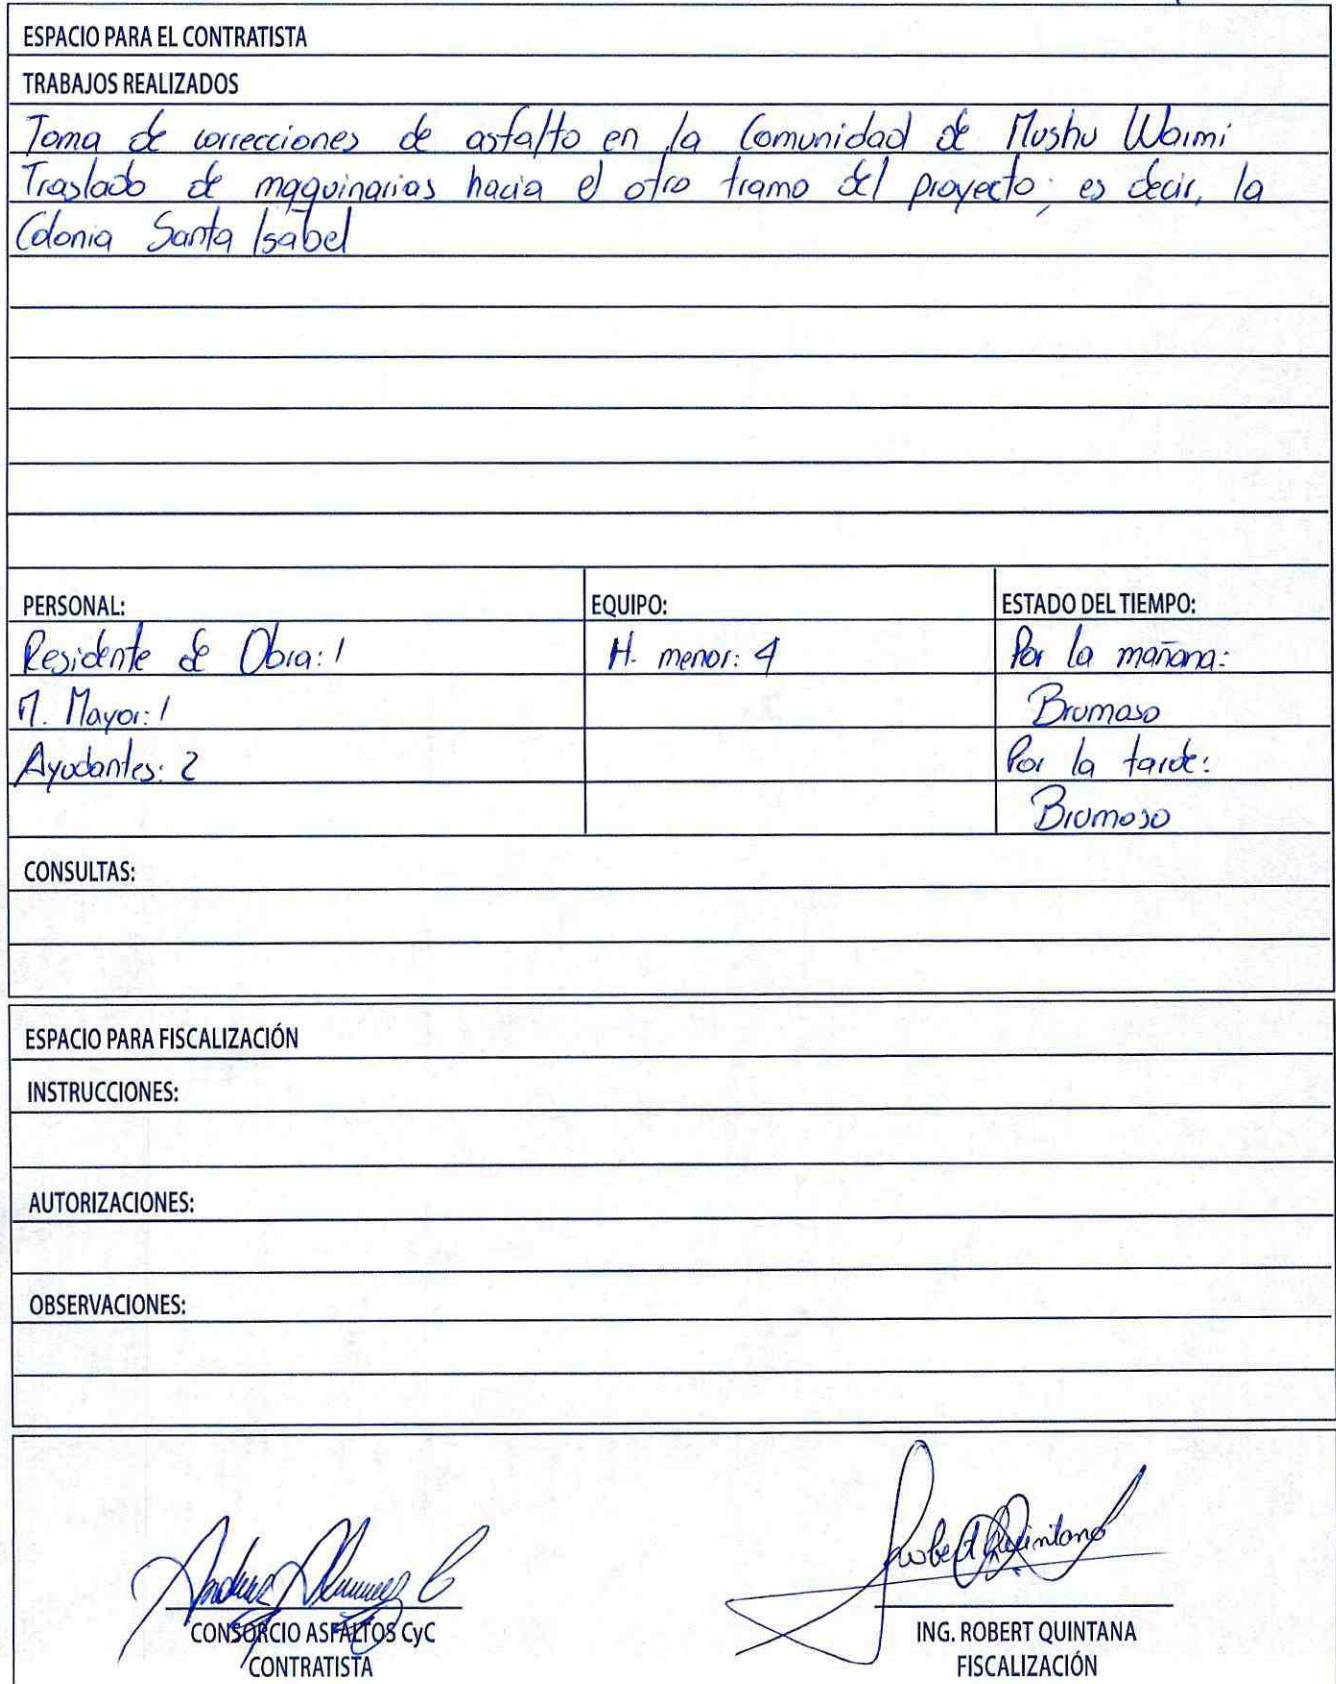 ESPACIO PARA EL CONTRATISTA
TRABAJOS REALIZADOS
Toma de correcciones de asfalto en la Comunidad de Mushu Warmi
Traslado de maquinarias hacia el otro tramo del proyecto; es decir, la
Colonia Santa Isabel
PERSONAL:
Residente de Obra: 1
M. Mayor: 1
Ayudantes: 2
EQUIPO:
H. menor: 4
ESTADO DEL TIEMPO:
Por la mañana:
Brumoso
Por la tarde:
Brumoso
CONSULTAS:
ESPACIO PARA FISCALIZACIÓN
INSTRUCCIONES:
AUTORIZACIONES:
OBSERVACIONES:
CONSORCIO ASFALTOS CyC
CONTRATISTA
Robert Quintana
ING. ROBERT QUINTANA
FISCALIZACIÓN